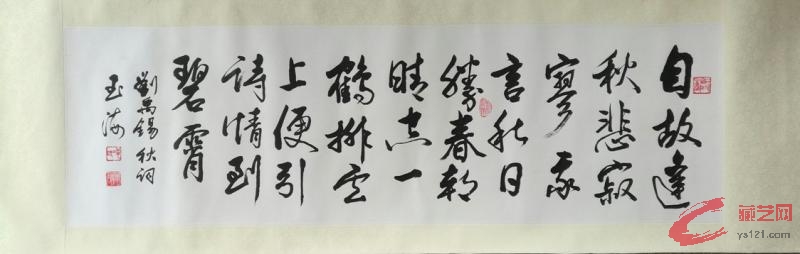 自故逢
秋悲寂
寥我
言秋日
勝春朝
晴空一
鶴排云
上便引
詩情到
碧霄
劉禹錫秋詞
玉海
藏艺网
ys121.com